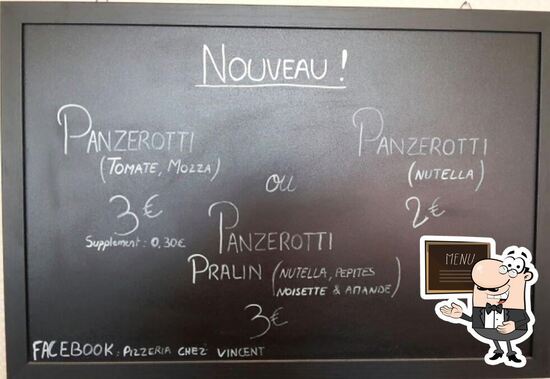 NOUVEAU !
PANZEROTTI
(TOMATE, MOZZA)
3€
Supplement : 0,30€
ou
PANZEROTTI
(NUTELLA)
2€
PANZEROTTI
PRALIN (NUTELLA, PEPITES
NOISETTE & AMANDE)
3€
MENU
FACEBOOK : PIZZERIA CHEZ VINCENT